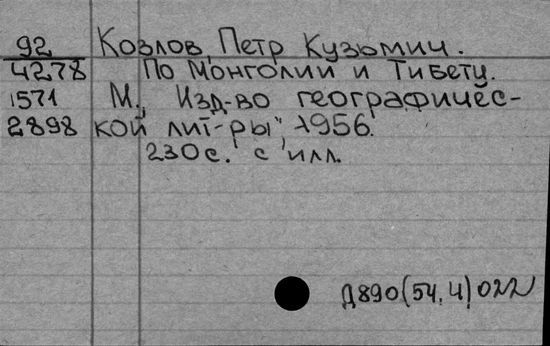 92 Козлов, Петр Кузьмич.
4278 По Монголии и Тибету.
1571 М., Изд-во географичес-
2898 кой лит-ры, 1956.
230с. с илл.
Д890(54,4)022